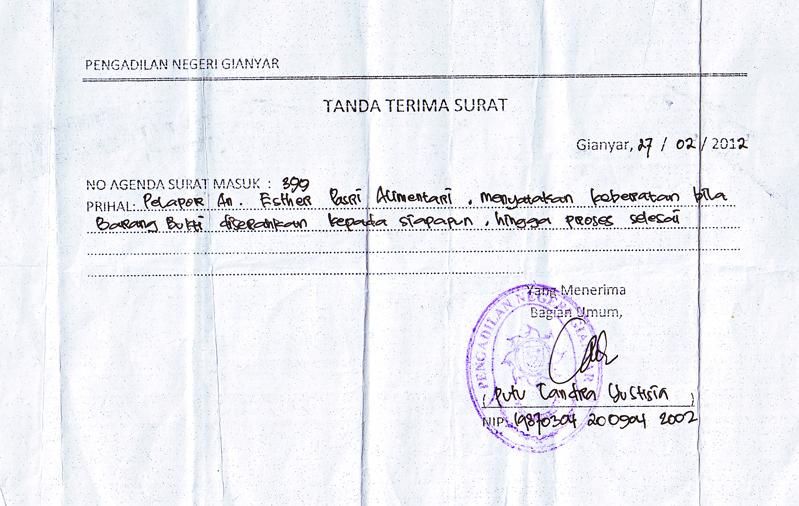 PENGADILAN NEGERI GIANYAR
TANDA TERIMA SURAT
Gianyar, 27 / 02 / 2012
NO AGENDA SURAT MASUK : 399
PRIHAL: Pelapor An. Esther Pasri Alimentari, menyatakan keberatan bila
Barang Bukti diserahkan kepada siapapun, hingga proses selesai
Yang Menerima
Bagian Umum,
PENGADILAN NEGERI GIANYAR
( Putu Candra Yustisia )
NIP. 19870304 200904 2002